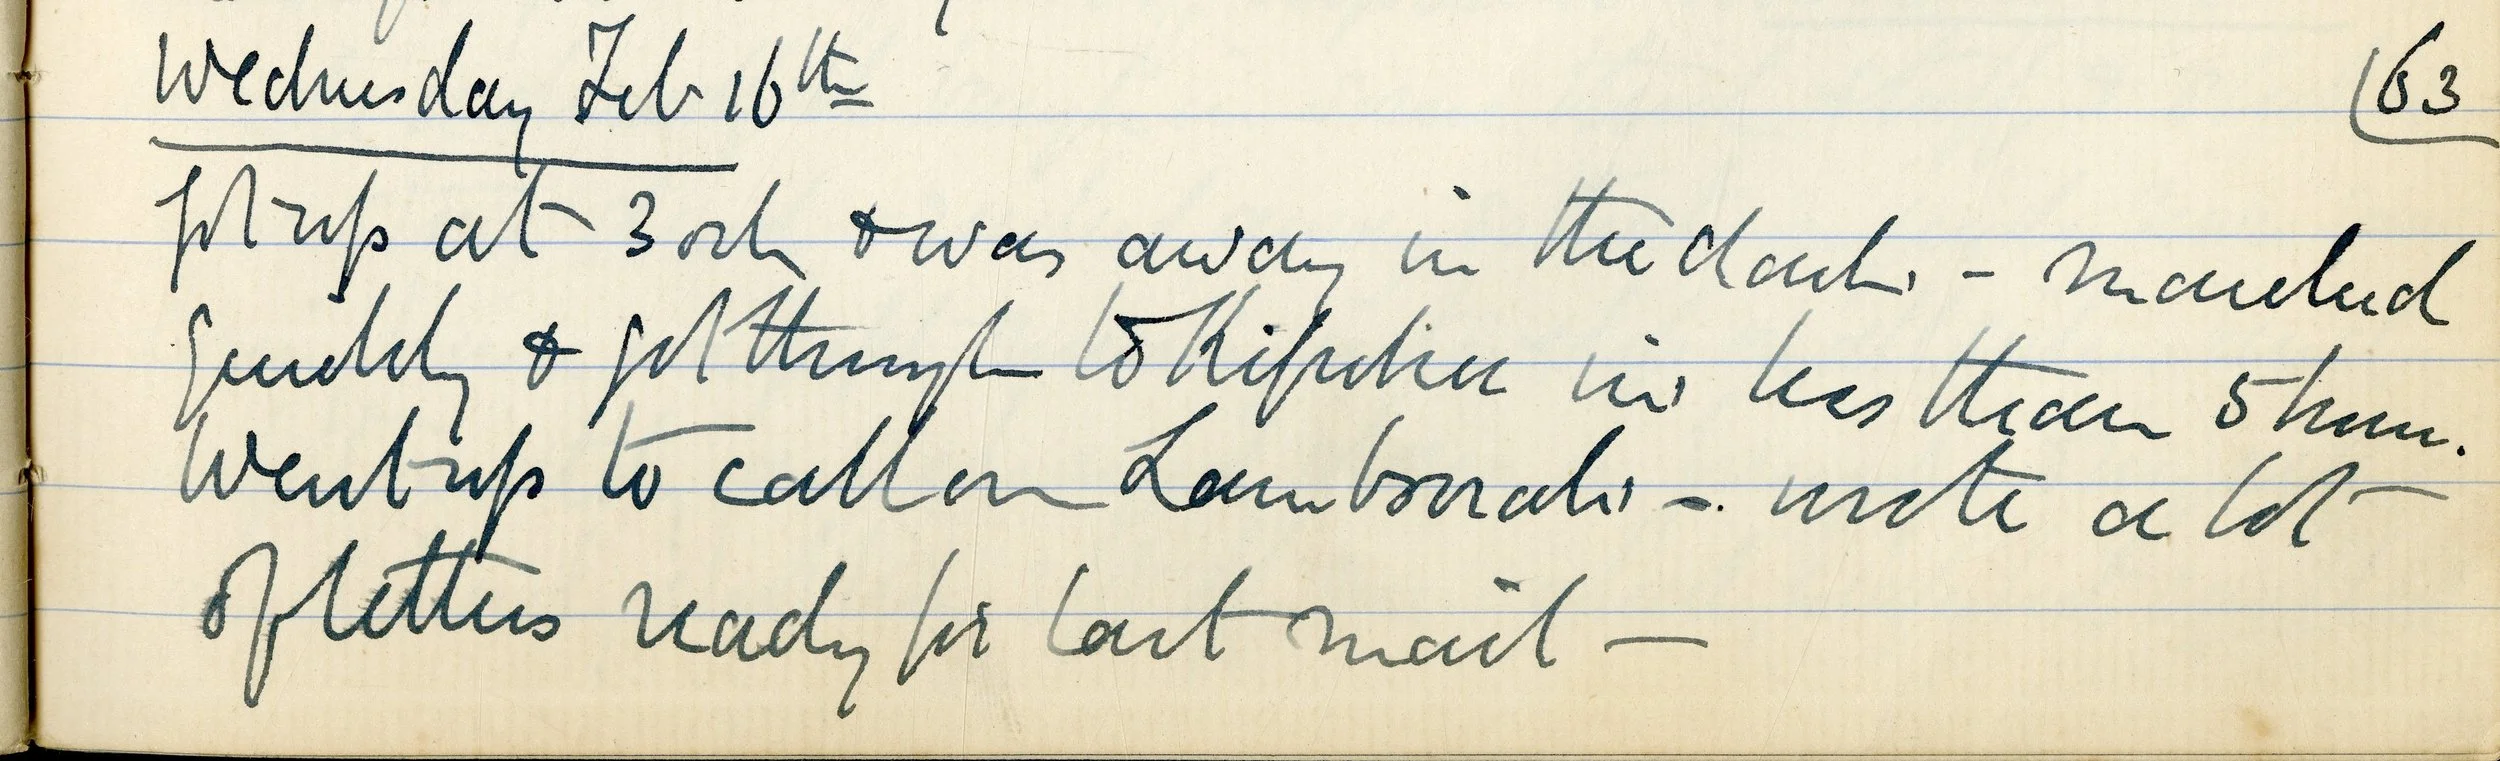 Wednesday Feb 16th
63
Got up at 3 och & was away in the dark. - marched
quickly & got through to in less than 5 hours.
Went up to call on - wrote a lot
of letters ready for last mail -